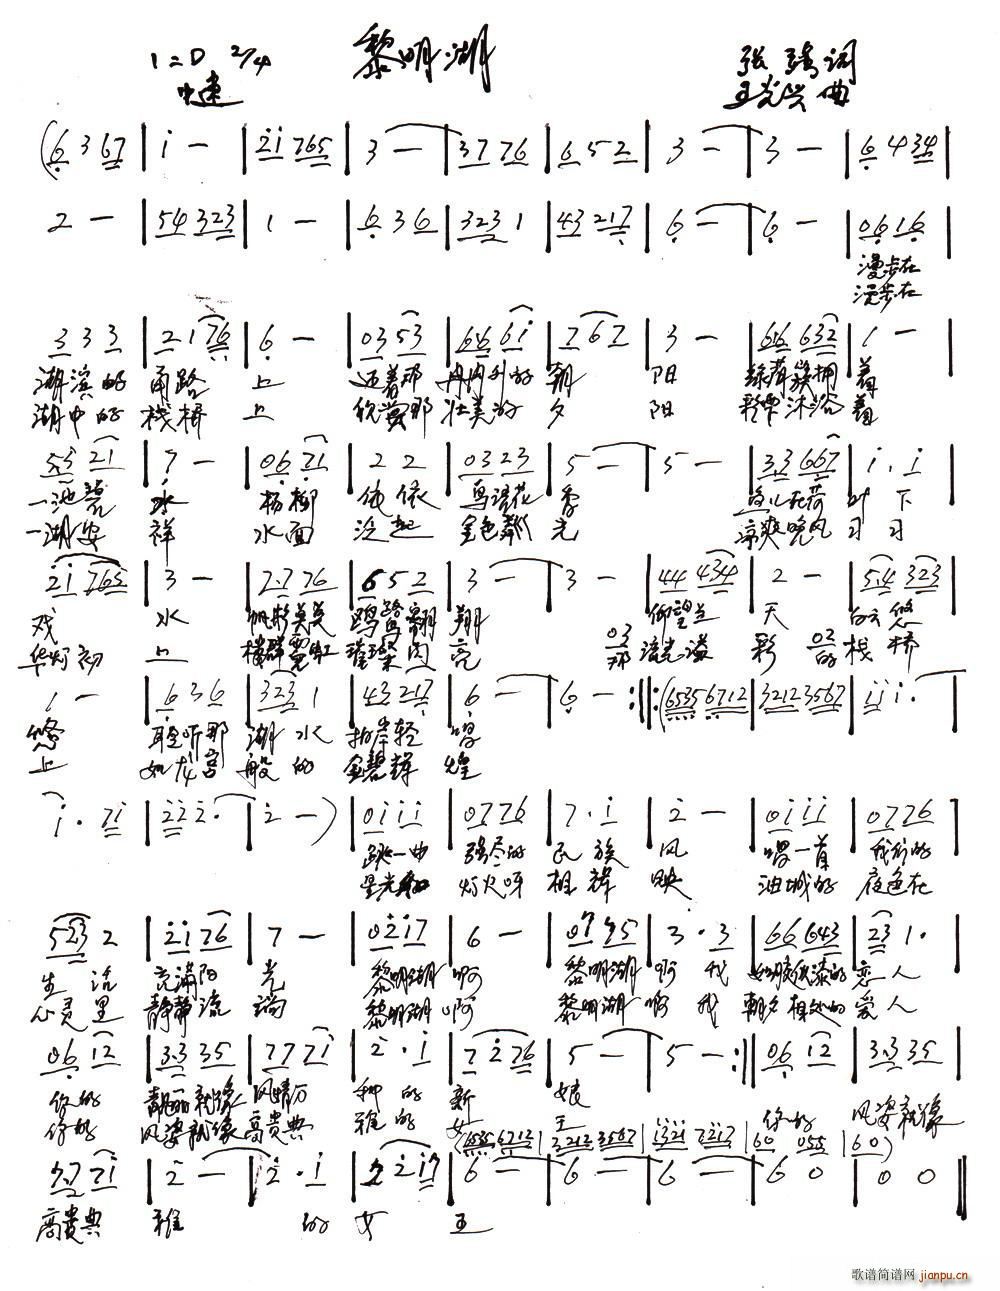 黎明湖
1=D 2/4
中速
张 词
王光兴 曲
(6 3 67 | i - | 2i 765 | 3 - | 37 76 | 6 5 2 | 3 - | 3 - | 6 4 34 |
2 - | 54 323 | 1 - | 6 3 6 | 323 1 | 43 217 | 6 - | 6 - | 06 16 |
漫步在
漫步在
3 3 3 | 2 1 76 | 6 - | 03 53 | 66 6i | 7 6 7 | 3 - | 66 632 | 1 - |
湖滨的 甬路 上 迎着那 冉冉升的 朝 阳 绿荷簇拥 着
湖中的 栈桥 上 欣赏那 壮美的 夕 阳 彩霞沐浴 着
55 21 | 7 - | 06 71 | 2 2 | 03 23 | 5 - | 5 - | 33 667 | i. i |
一池碧 水 杨柳 依依 鸟语花 香 鱼儿在荷 叶 下
一湖安 祥 水面 泛起 金色 光 凉爽晚风 习 习
2i 765 | 3 - | 7.7 76 | 6 5 2 | 3 - | 3 - | 44 434 | 2 - | 5.4 323 |
戏 水 帆影点点 鸥鹭翻 翔 仰望蓝 天 白云悠
华灯初 上 楼群霓虹 璀璨闪 亮 03 那 流光溢 彩 02 的 栈桥
1 - | 6 3 6 | 323 1 | 43 217 | 6 - | 6 - :||: (6535 6712 | 3212 3567 | iii i. |
悠 聆听那 湖 水 拍岸轻 唱
上 如龙宫 般 的 金碧辉 煌
i. 7i | 222. | 2 - ) | 0i ii | 07 76 | 7. i | 2 - | 0i ii | 07 76 |
跳一曲 民族 风 唱一首 我们的
星光和 灯火呀 相辉 映 油城的 夜色在
523 2 | 2i 76 | 7 - | 02 i7 | 6 - | 07 75 | 3. 3 | 66 643 | 23 1. |
生 活 充满阳 光 黎明湖 啊 黎明湖 啊 我 如胶似漆的 恋人
心灵里 静静流 淌 黎明湖 啊 黎明湖 啊 我 朝夕相处的 爱人
06 12 | 3.3 35 | 77 7i | 2. i | 7 2 76 | 5 - | 5 - :|| 06 12 | 3.3 35 |
你的 靓丽就像 风情万 种 的 新 娘
你的 风姿就像 高贵典 雅 的 女 王 你的 风姿就像
(6535 6712 | 3212 3567 | i321 7217 | 60 055 | 60)
7.7 7i | 2 - | 2. i | 7 2 i7 | 6 - | 6 - | 6 - | 6 0 | 0 0 ||
高贵典 雅 的 女 王
歌谱简谱网 jianpu.cn